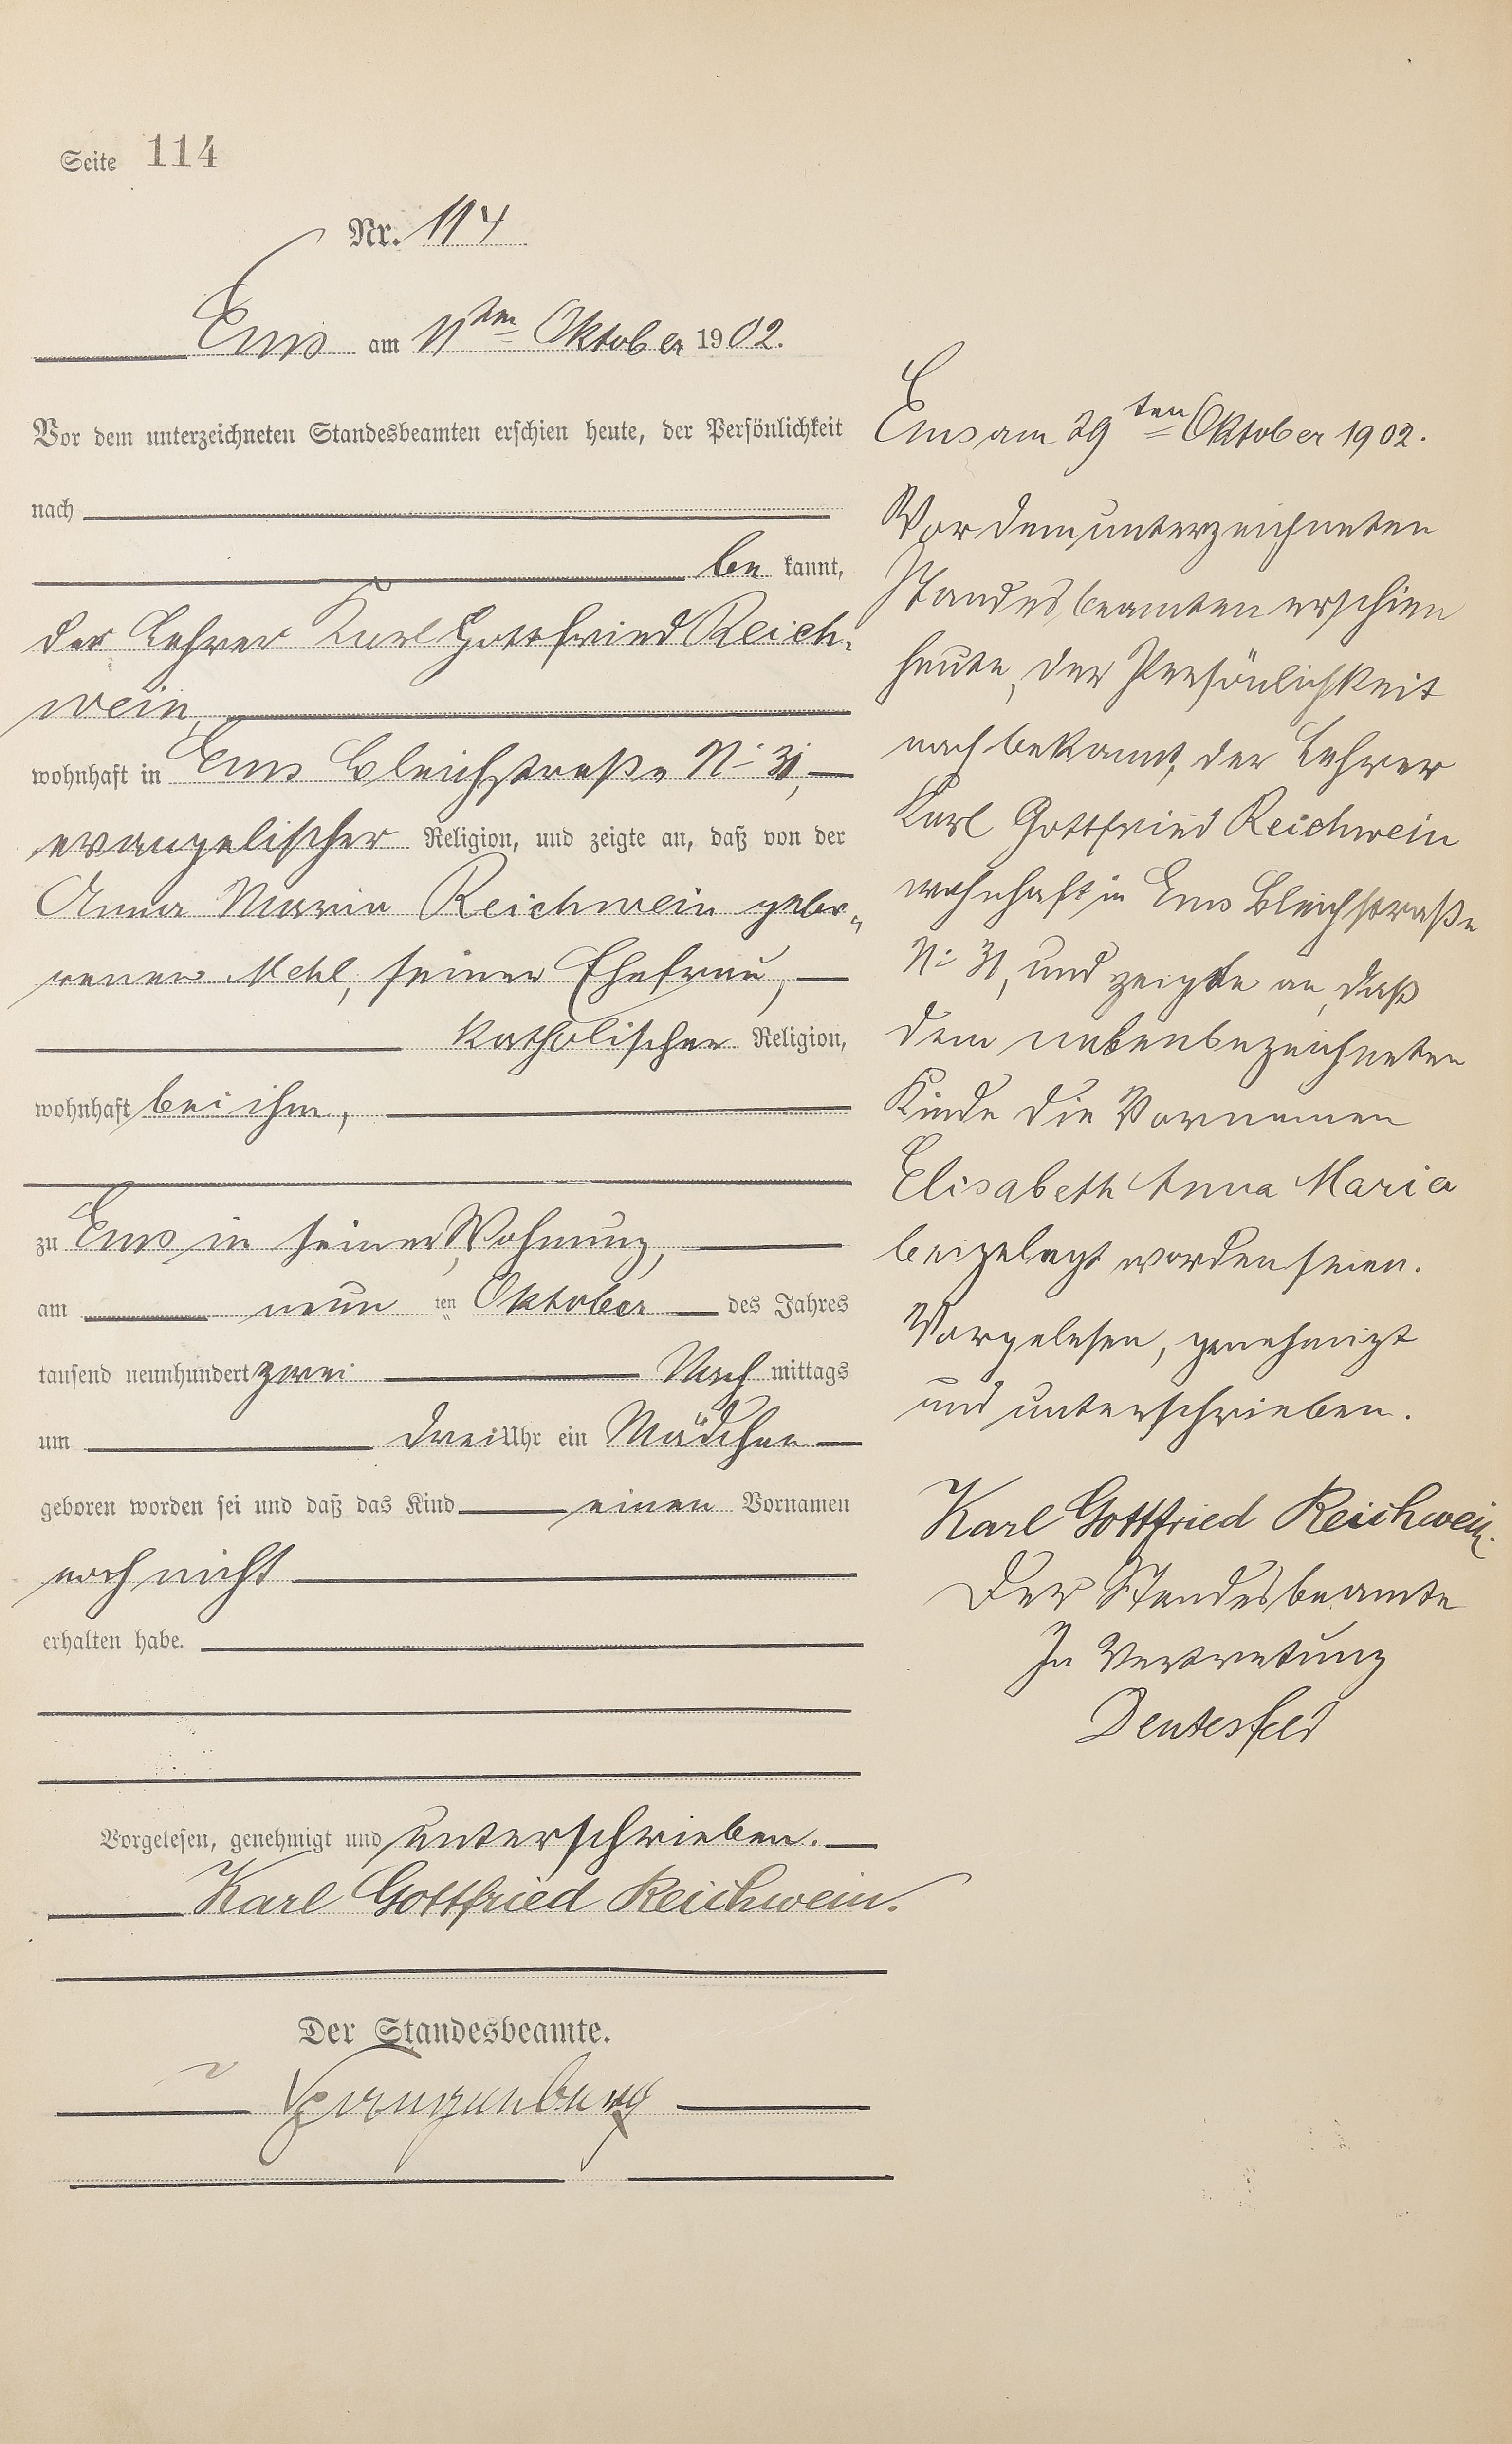 Seite 114
Nr. 114
Ems am 11ten Oktober 1902.
Vor dem unterzeichneten Standesbeamten erschien heute, der Persönlichkeit
nach
be kannt,
der Lehrer Karl Gottfried Reich-
wein,
wohnhaft in Ems Bleichstraße No 31,
evangelischer Religion, und zeigte an, daß von der
Anna Maria Reichwein gebo-
renen Mehl, seiner Ehefrau,
katholischer Religion,
wohnhaft bei ihm,
zu Ems in seiner Wohnung,
am neun ten Oktober des Jahres
tausend neunhundert zwei Nach mittags
um drei Uhr ein Mädchen
geboren worden sei und daß das Kind einen Vornamen
noch nicht
erhalten habe.
Vorgelesen, genehmigt und unterschrieben.
Karl Gottfried Reichwein.
Der Standesbeamte.
Ems am 29ten Oktober 1902.
Vor dem unterzeichneten
Standesbeamten erschien
heute, der Persönlichkeit
nach bekannt, der Lehrer
Karl Gottfried Reichwein
wohnhaft in Ems Bleichstraße
No 31, und zeigte an, daß
dem nebenbezeichneten
Kinde die Vornamen
Elisabeth Anna Maria
beigelegt worden seien.
Vorgelesen, genehmigt
und unterschrieben.
Karl Gottfried Reichwein.
Der Standesbeamte
In Vertretung